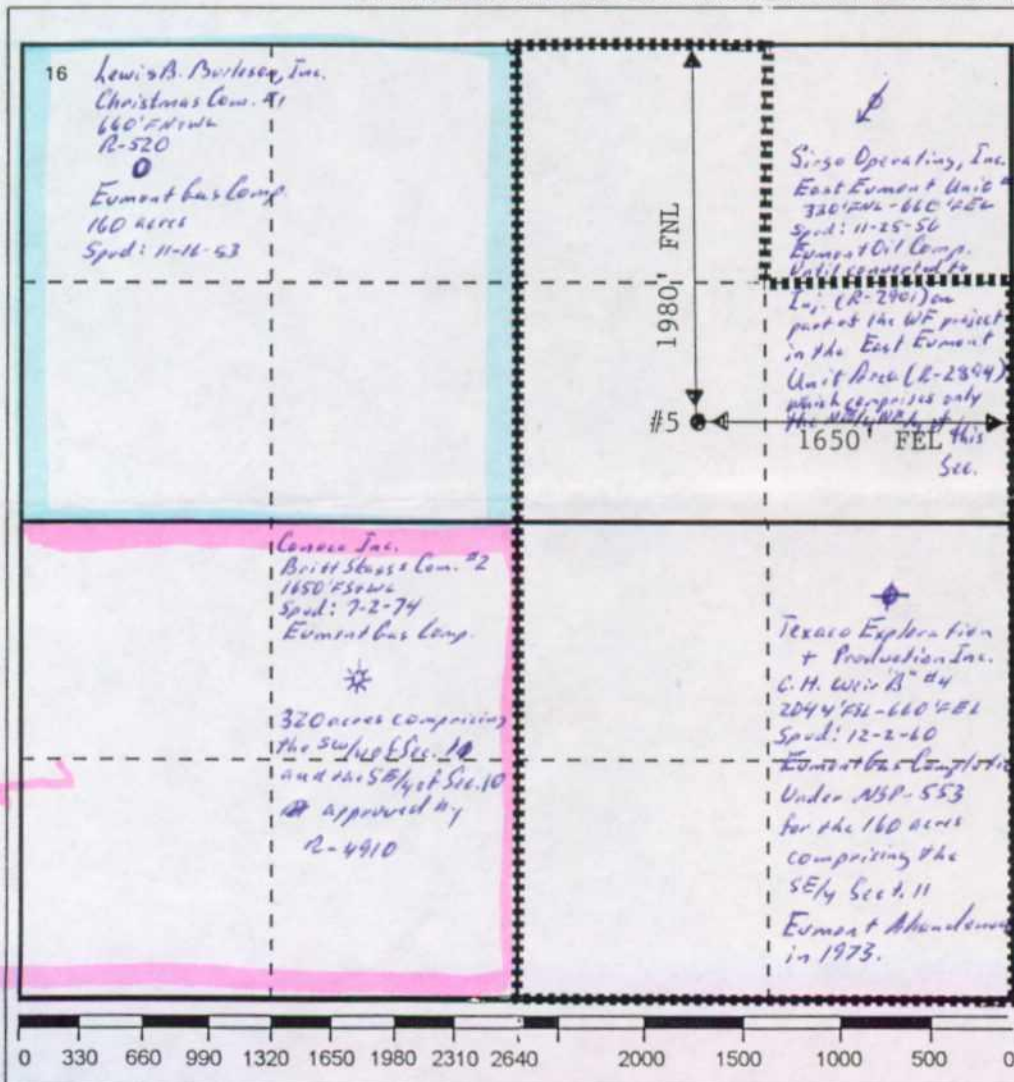 16
Lewis B. Burleson, Inc.
Christmas Com. #1
660' FN+WL
R-520
Eumont Gas Comp.
160 acres
Spud: 11-16-53
1980' FNL
#5
1650' FEL
Sirgo Operating, Inc.
East Eumont Unit #
330' FNL - 660' FEL
Spud: 11-25-56
Eumont Oil Comp.
Until converted to
Inj. (R-2901) on
part of the WF project
in the East Eumont
Unit Area (R-2894)
which comprises only
the NE/4 NE/4 of this
Sec.
Conoco Inc.
Britt Skaggs Com. #2
1650' FS+WL
Spud: 7-2-74
Eumont Gas Comp.
320 acres comprising
the SW/4 of Sec.
and the SE/4 of Sec. 10
approved by
R-4910
Texaco Exploration
+ Production Inc.
C. H. Weir "B" #4
2044' FSL - 660' FEL
Spud: 12-2-60
Eumont Gas Completio
Under NSP-553
for the 160 acres
comprising the
SE/4 Sect. 11
Eumont Abandoned
in 1973.
0 330 660 990 1320 1650 1980 2310 2640 2000 1500 1000 500 0